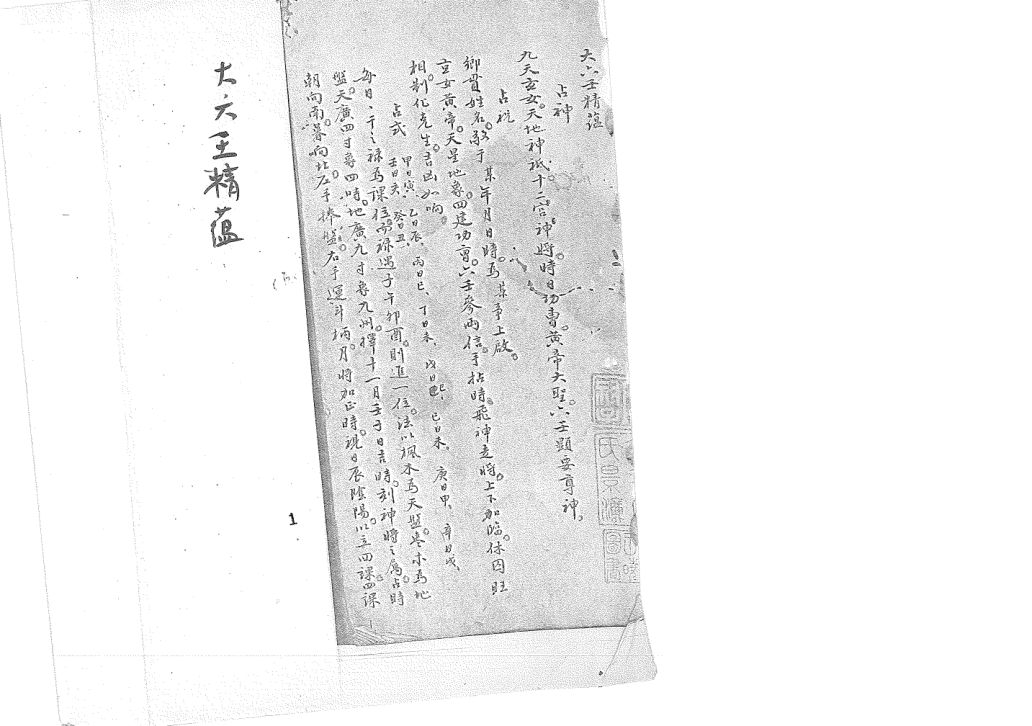 大六壬精蘊
占神
九天玄女。天地神祇。十二宮神。將時日功曹。黃帝大聖。六壬顯要尊神。
占祝
鄉貫姓名。敬于某年月日時。為某事上啟。
玄女黃帝。天星地象。四建功曹。六壬參兩。信手拈時。飛神走將。上下加臨。休囚旺
相。制化克生。吉凶如响。
占式
甲日寅、乙日辰、丙日巳、丁日未、戊日巳、己日未、庚日申、辛日戌、
壬日亥、癸日丑、
每日、干之祿為課位。而祿遇子午卯酉。則進一位。法以楓木為天盤。棗木為地
盤。天廣四寸象四時。地廣九寸象九州。擇十一月壬子日吉時。刻神將之屬。占時
朝向南。暮向北。左手捧盤。右手運斗柄。月將加正時。視日辰陰陽。以立四課。四課
大六壬精蘊
1